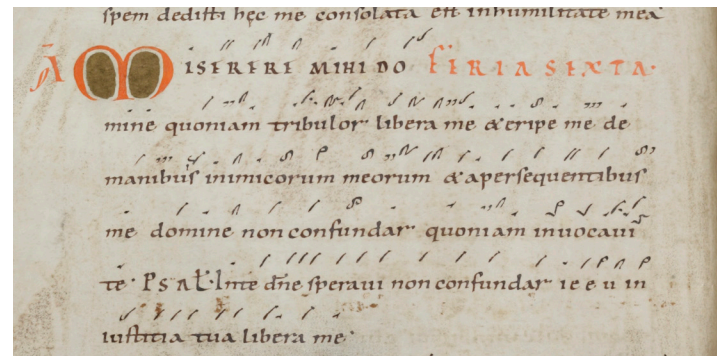 spem dedisti hęc me consolata est inhumilitate mea
A MISERERE MIHI DO FERIA SEXTA.
mine quoniam tribulor libera me & eripe me de
manibus inimicorum meorum & apersequentibus
me domine non confundar quoniam inuocaui
te. Psal Inte dne speraui non confundar ieeu in
iustitia tua libera me.